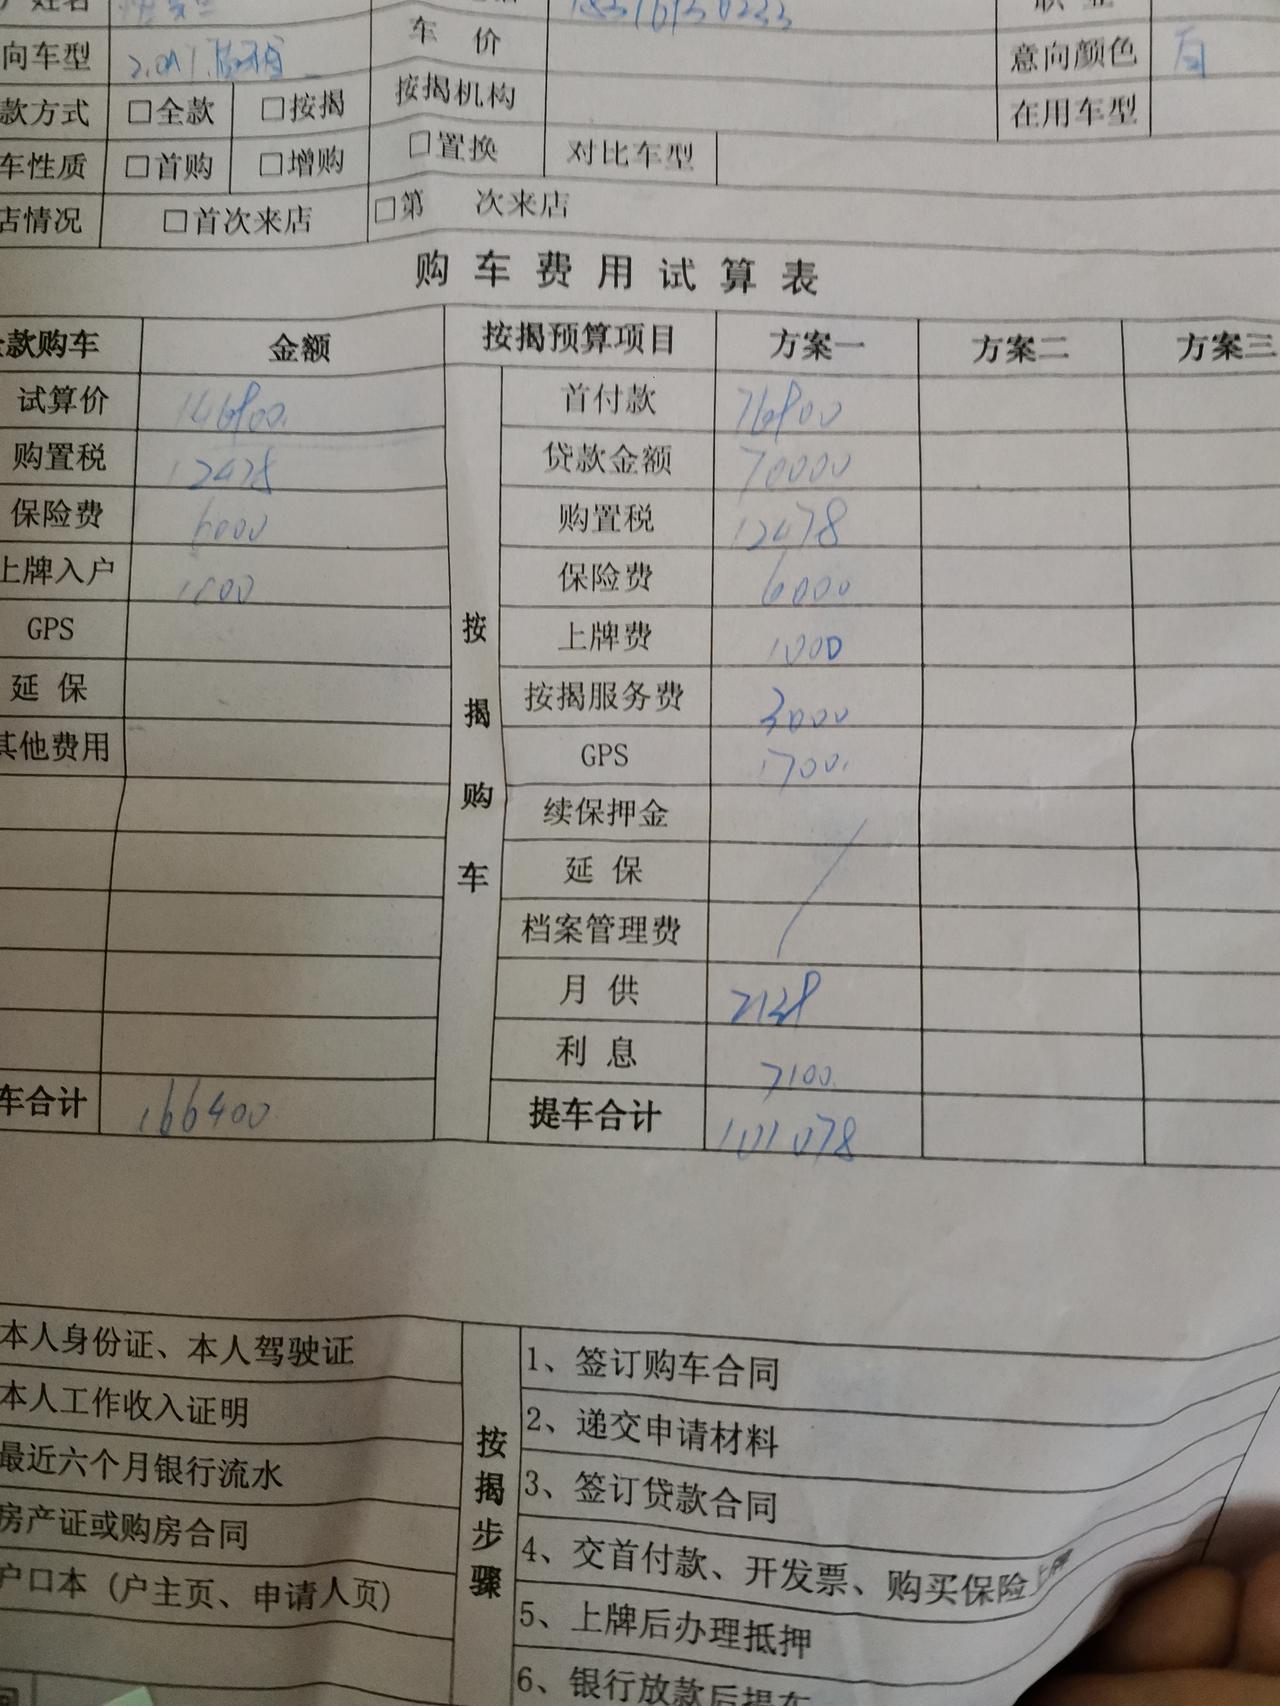 姓名
向车型 2.0A/T
车 价
意向颜色 白
款方式 □全款 □按揭 按揭机构 在用车型
车性质 □首购 □增购 □置换 对比车型
店情况 □首次来店 □第 次来店
购车费用试算表
款购车 金额 按揭预算项目 方案一 方案二 方案三
试算价 146800 首付款 76800
购置税 12478 贷款金额 70000
保险费 6000 购置税 12478
上牌入户 1000 保险费 6000
GPS 上牌费 1000
延保 按揭服务费 3000
其他费用 GPS 1700
续保押金
延保
档案管理费
月供 2138
利息 7100
车合计 166400 提车合计 101078
按揭购车
本人身份证、本人驾驶证
本人工作收入证明
最近六个月银行流水
房产证或购房合同
户口本(户主页、申请人页)
按揭步骤
1、签订购车合同
2、递交申请材料
3、签订贷款合同
4、交首付款、开发票、购买保险
5、上牌后办理抵押
6、银行放款后提车